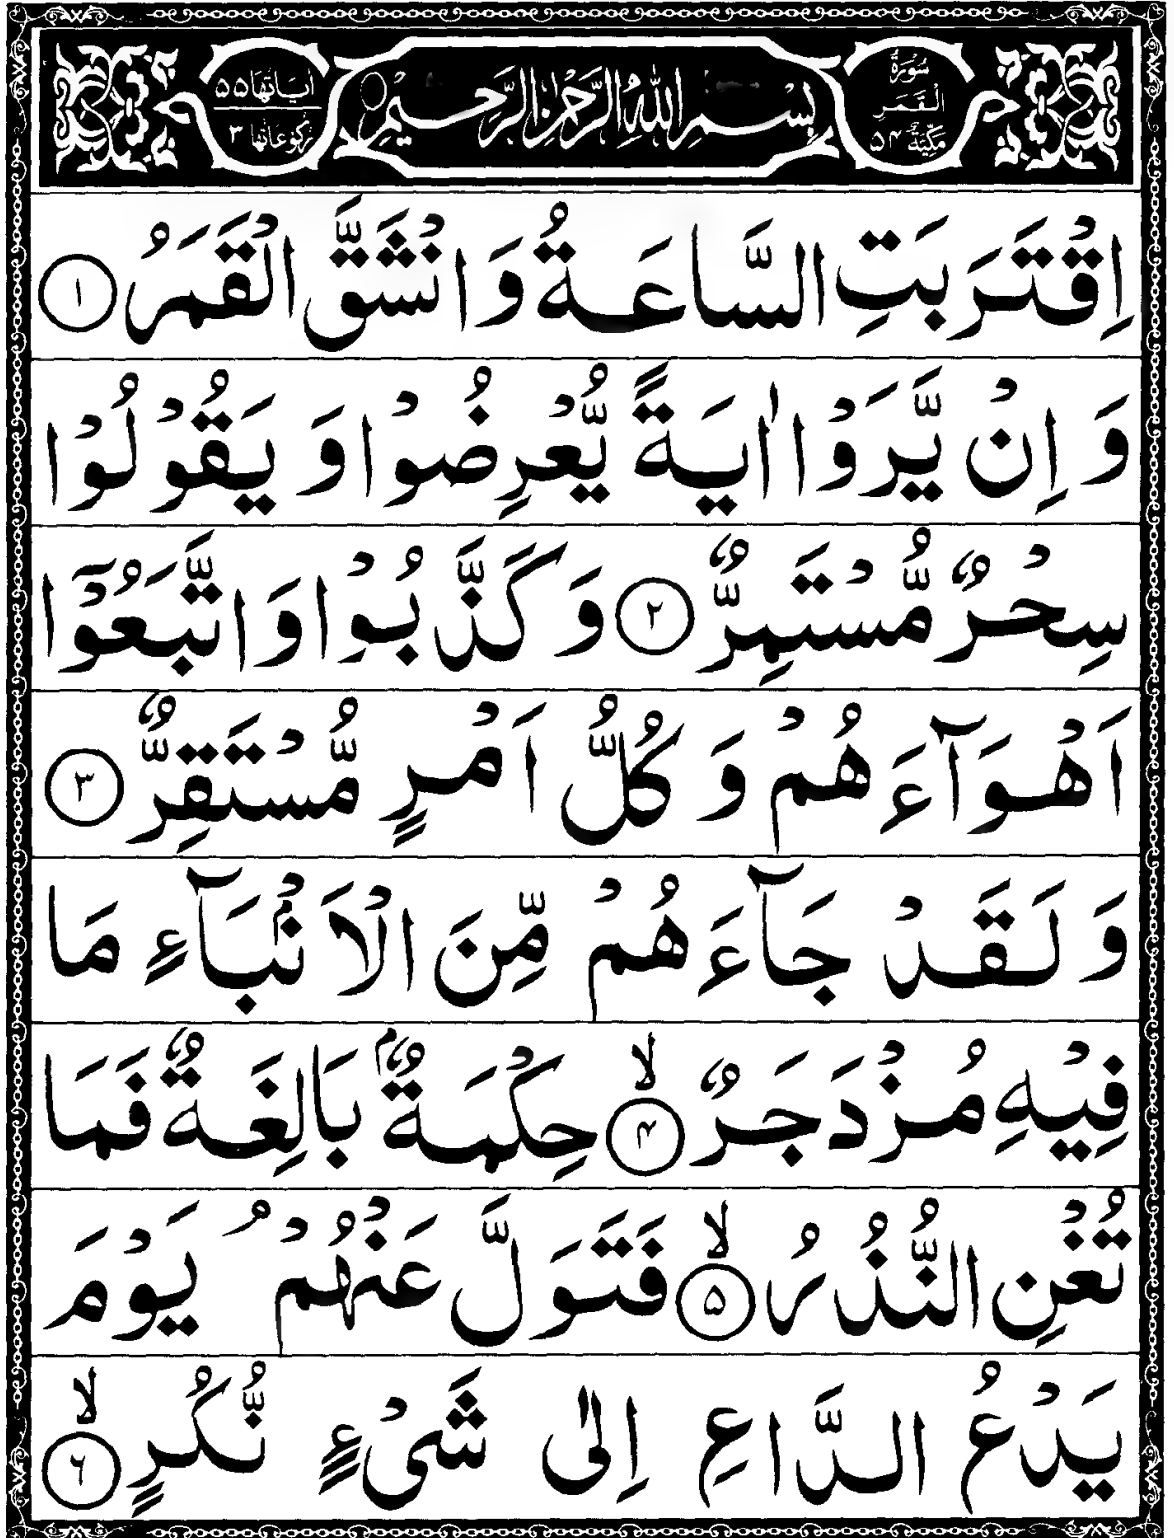 سُوْرَةُ الْقَمَرِ مَكِّيَّةٌ ٥٤
بِسْمِ اللّٰهِ الرَّحْمٰنِ الرَّحِيْمِ
اٰيَاتُهَا ٥٥ رُكُوْعَاتُهَا ٣
اِقْتَرَبَتِ السَّاعَةُ وَ انْشَقَّ الْقَمَرُ ۝١
وَ اِنْ يَّرَوْا اٰيَةً يُّعْرِضُوْا وَ يَقُوْلُوْا
سِحْرٌ مُّسْتَمِرٌّ ۝٢ وَ كَذَّبُوْا وَ اتَّبَعُوْۤا
اَهْوَآءَهُمْ وَ كُلُّ اَمْرٍ مُّسْتَقِرٌّ ۝٣
وَ لَقَدْ جَآءَهُمْ مِّنَ الْاَنْۢبَآءِ مَا
فِيْهِ مُزْدَجَرٌ ۝٤ۙ حِكْمَةٌۢ بَالِغَةٌ فَمَا
تُغْنِ النُّذُرُ ۝٥ۙ فَتَوَلَّ عَنْهُمْ ۘ يَوْمَ
يَدْعُ الدَّاعِ اِلٰى شَيْءٍ نُّكُرٍ ۝٦ۙ